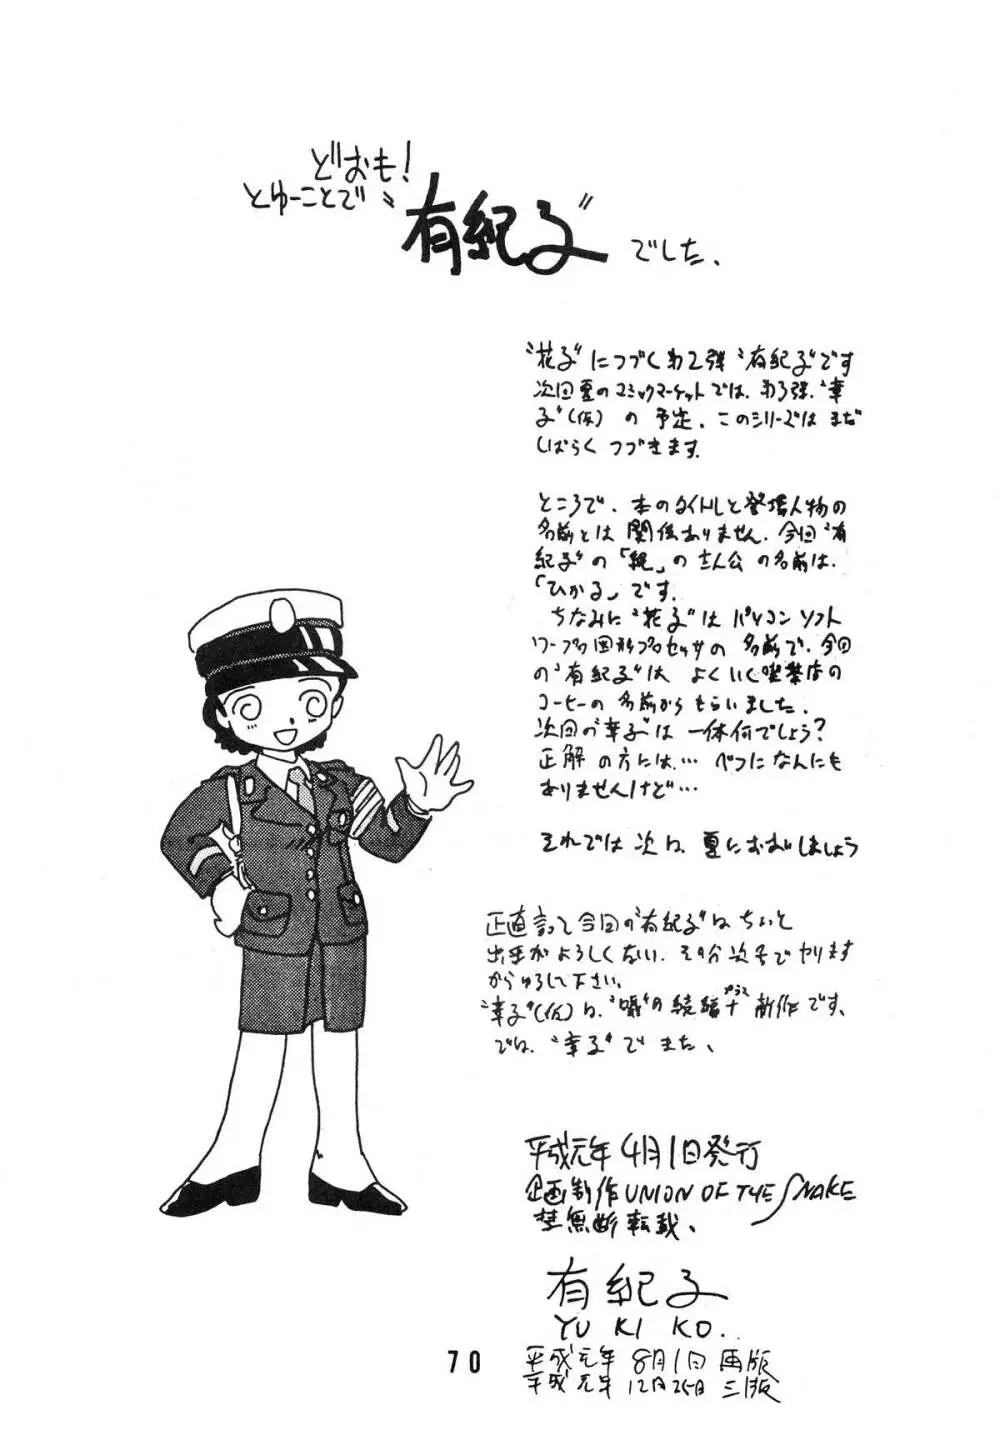 どおも!
とゆーことで〝有紀子〟でした、
〝花子〟につづく第2弾〝有紀子〟です
次回夏のコミックマーケットでは、第3弾、〝幸
子〟(仮)の予定、このシリーズはまだ
しばらくつづきます。
ところで、本のタイトルと登場人物の
名前とは関係ありません、今回〝有
紀子〟の「  」の主人公の名前は、
「ひかる」です。
ちなみに〝花子〟はパソコンソフト
ワープロ図形プロセッサの名前で、今回
の〝有紀子〟は よくいく喫茶店の
コーヒーの名前からもらいました。
次回の〝幸子〟は一体何でしょう?
正解の方には… べつになんにも
ありませんけど…
それでは次は、夏におあいしましょう
正直言って今回の〝有紀子〟はちょいと
出来がよろしくない、その分次号でやります
からゆるして下さい。
〝幸子〟(仮)は、 の続編+プラス新作です、
では、〝幸子〟でまた、
平成元年4月1日発行
企画制作UNION OF THE SNAKE
禁無断転載、
有紀子
YU KI KO..
平成元年 8月1日 再版
平成元年 12月25日 三版
70